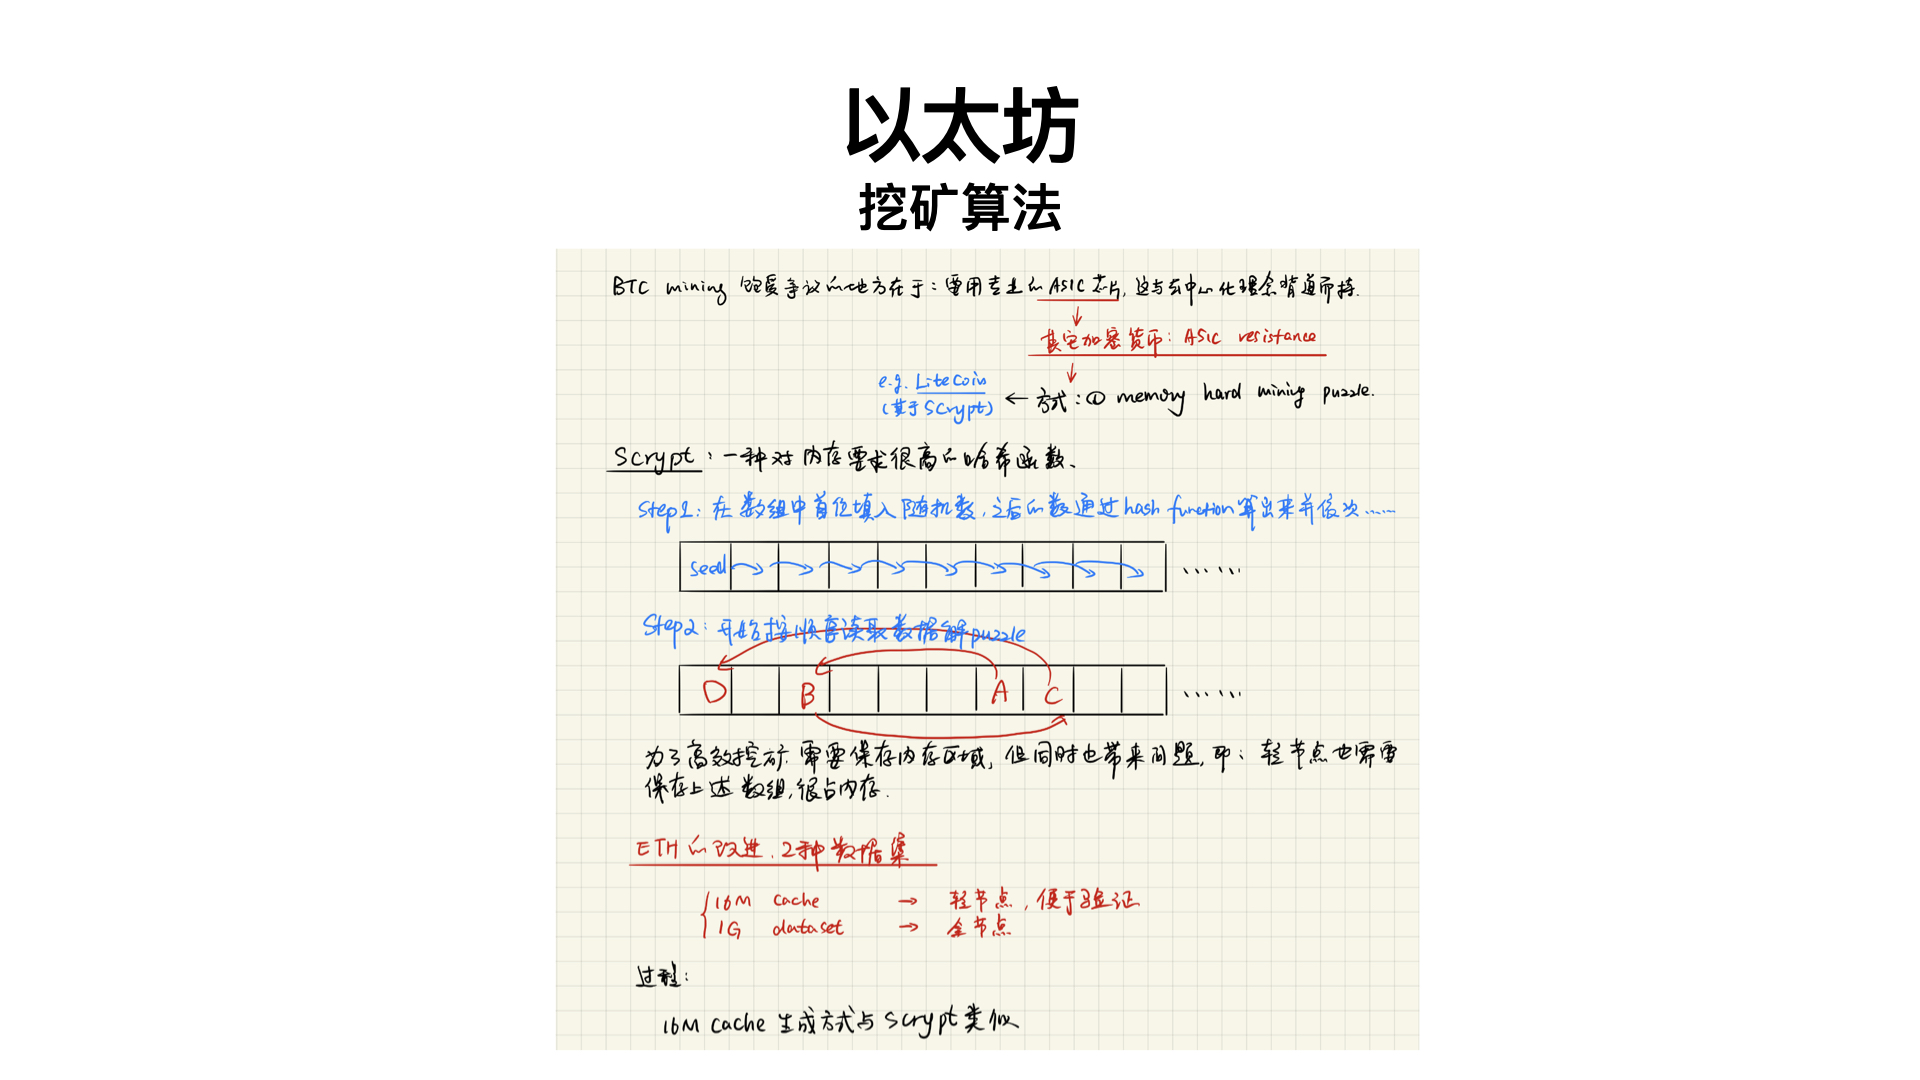 以太坊
挖矿算法
BTC mining 饱受争议的地方在于：要用专业的ASIC芯片，这与去中心化理念背道而持.
其它加密货币：ASIC resistance
e.g. LiteCoin
(基于SCrypt)
← 方式：① memory hard mining puzzle.
Scrypt：一种对内存要求很高的哈希函数、
Step1：在数组中首位填入随机数，之后的数通过hash function算出来并依次……
seed ……
Step2：开始按顺序读取数据解puzzle
D B A C ……
为了高效挖矿，需要保存内存区域，但同时也带来问题，即：轻节点也需要
保存上述数组，很占内存.
ETH的改进.2种数据集
16M cache → 轻节点，便于验证
1G dataset → 全节点
过程：
16M cache 生成方式与scrypt类似